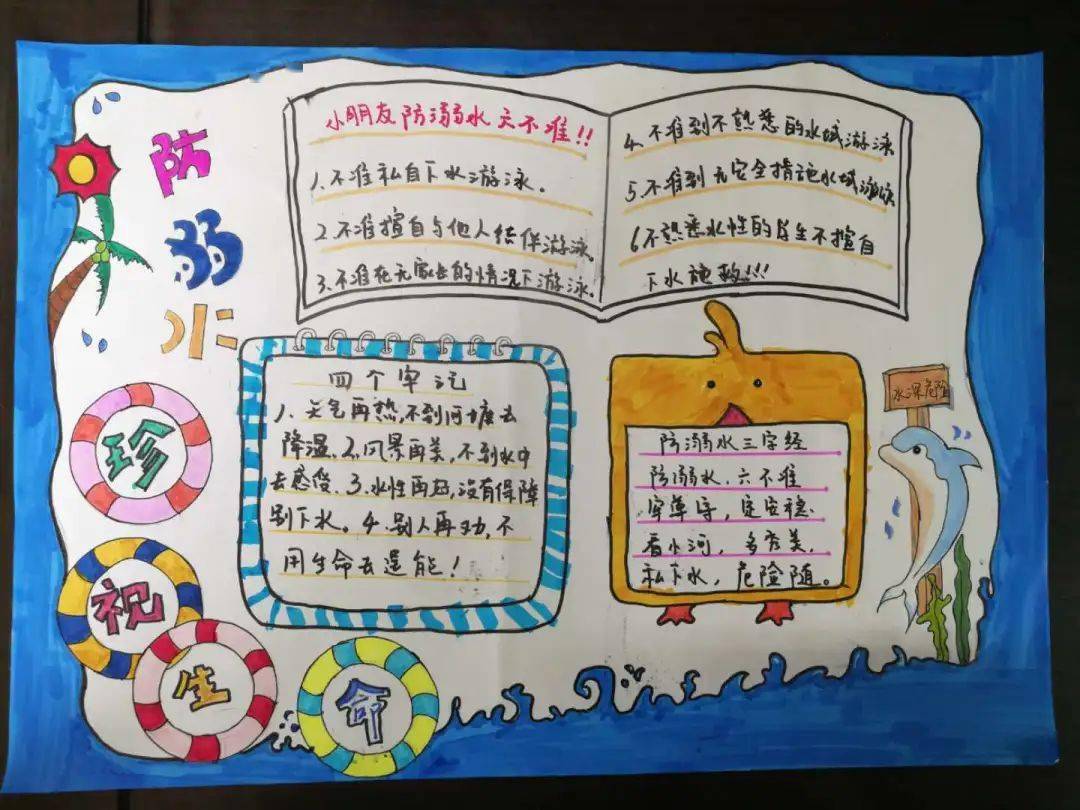 防
溺
水
珍
视
生
命
小朋友防溺水六不准!!
1.不准私自下水游泳.
2.不准擅自与他人结伴游泳.
3.不准在无家长的情况下游泳.
4.不准到不熟悉的水域游泳
5.不准到无安全措施水域游泳
6不熟悉水性的学生不擅自
下水施救!!!
四个牢记
1、天气再热,不到河塘去
降温、2.风景再美,不到水中
去感受、3.水性再好,没有保障
别下水。4.别人再劝,不
用生命去逞能!
防溺水三字经
防溺水.六不准
牢遵守,定安稳.
看小河,多秀美,
私下水,危险随。
水深危险